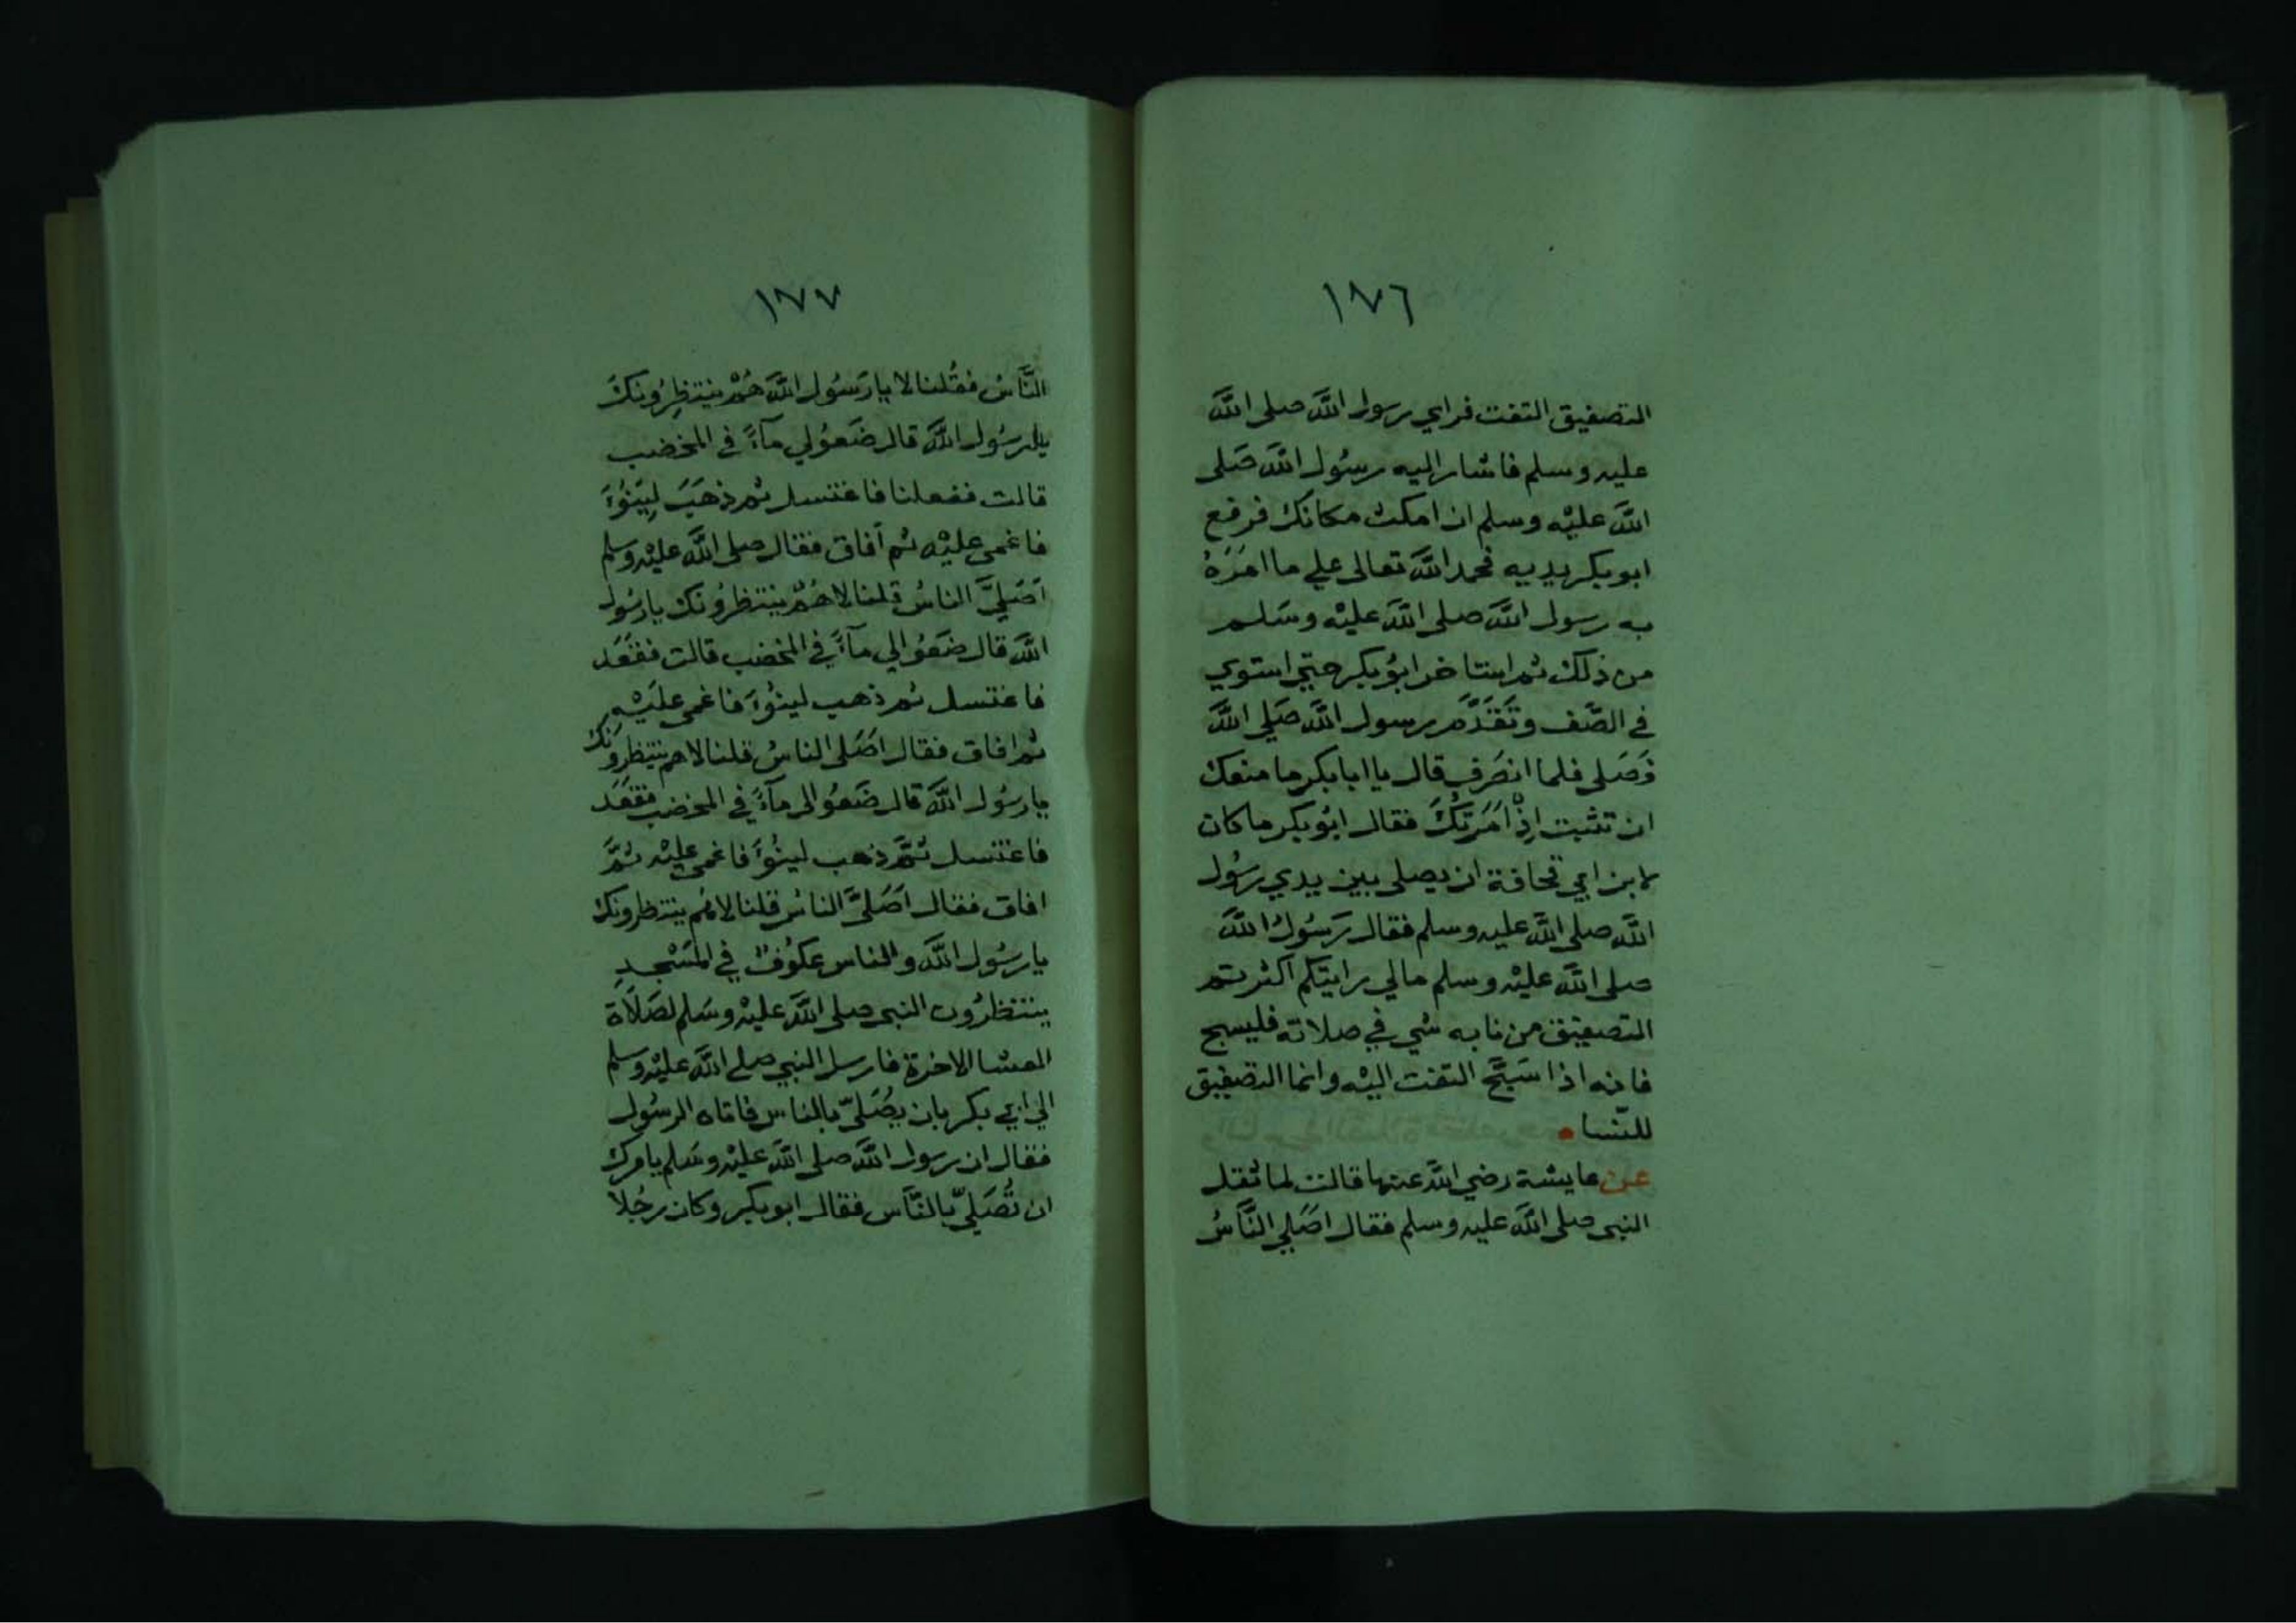 ١٧٦
التصفيق التفت فراي رسول الله صلى الله
عليه وسلم فاشار اليه رسُول الله صَلى
الله عليْه وسلم ان امكث مكانك فرفع
ابو بكر يديه فحمد الله تعالى علي ما امَرَهُ
به رسول الله صلى الله عليْه وسَلم
من ذلك ثم استاخر ابوُ بكر حتي استوي
في الصَّف وتَقَدَّم رسول الله صَلي الله
فَصَلى فلما انصَرف قال يا ابا بكر ما منعك
ان تثبت اِذْ اَمَرتُكَ فقال ابوُ بكر ما كان
لابن ابي قحافة ان يصلى بين يدي رسُول
الله صلى الله عليه وسلم فقال رَسُولُ الله
صلى الله عليْه وسلم مالي رايتكم اكثرتم
التصفيق من نابه شي في صلاته فليسبح
فانه اذا سَبَّح التفت اليْه وانما التصفيق
للنّسا
عن عايشة رضي الله عنها قالت لما ثقل
النبى صلى الله عليه وسلم فقال اصَلي النَّاسُ
١٧٧
النَّاسُ فقُلنا لا يا رَسُول الله هُمْ ينتظِرُونكَ
يا رسُول الله قال ضَعوُ لي مآءً في المخضب
قالت ففعلنا فاغتسل ثم ذهَبَ لِيَنُوٓءَ
فاغمى عليْه ثم اَفاق فقال صلى الله عليْه وسلم
اَصَليَّ الناسُ قلنا لا هُمْ ينتظرُونك يا رسُول
الله قال ضَعوُ الي مآءً في المخضب قالت فقَعَد
فاغتسل ثم ذهب لينُوٓءَ فاغمى عليْه
ثم افاق فقال اصَلى الناسُ قلنا لا هم ينتظرونك
يا رسُول الله قال ضَعوُ الي مآءً في المخضب فقعَد
فاغتسل ثمَّ ذهب لينُوٓءَ فاغمى عليْه ثمَّ
افاق فقال اَصَلىَّ الناسُ قلنا لا هُم ينتظرونك
يا رسُول الله والناس عكوُفٌ في المَسْجدِ
ينتظرُون النبى صلى الله عليْه وسَلم لصَلاة
العشا الاخرة فارسل النبي صلي الله عليْه وسلم
الي ابي بكر بان يصُلىّ بالناس فاتاه الرسُول
فقال ان رسول الله صلى الله عليْه وسَلم يامرك
ان تُصَليّ بالنَّاس فقال ابو بكر وكان رجُلا